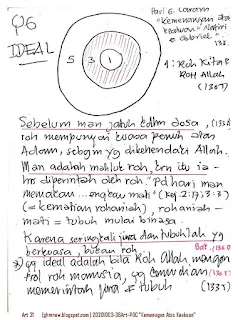 96
IDEAL
5 3 1
Paul G. Caram
"Kemenangan atas
Keakuan" Natiri
& Gabriel.
138.
4: Roh Kita &
Roh Allah
(136)
Sebelum man jatuh dlm dosa, (134
roh mempunyai kuasa penuh atas
Adam, sebgm yg dikehendaki Allah.
Man adalah makhluk roh, krn itu ia
hrs diperintah oleh roh. "Pd hari man
memakan ... engkau mati" (Kej 2:17; 3:3)
(= kematian rohaniah), rohaniah
mati = tubuh mulai binasa.
Karena seringkali jiwa dan tubuhlah yg
berkuasa, bukan roh.
yg ideal adalah bila Roh Allah
roh manusia, yg
memerintah jiwa & tubuh (133)
Art 31 "Kemenangan Atas Keakuan"